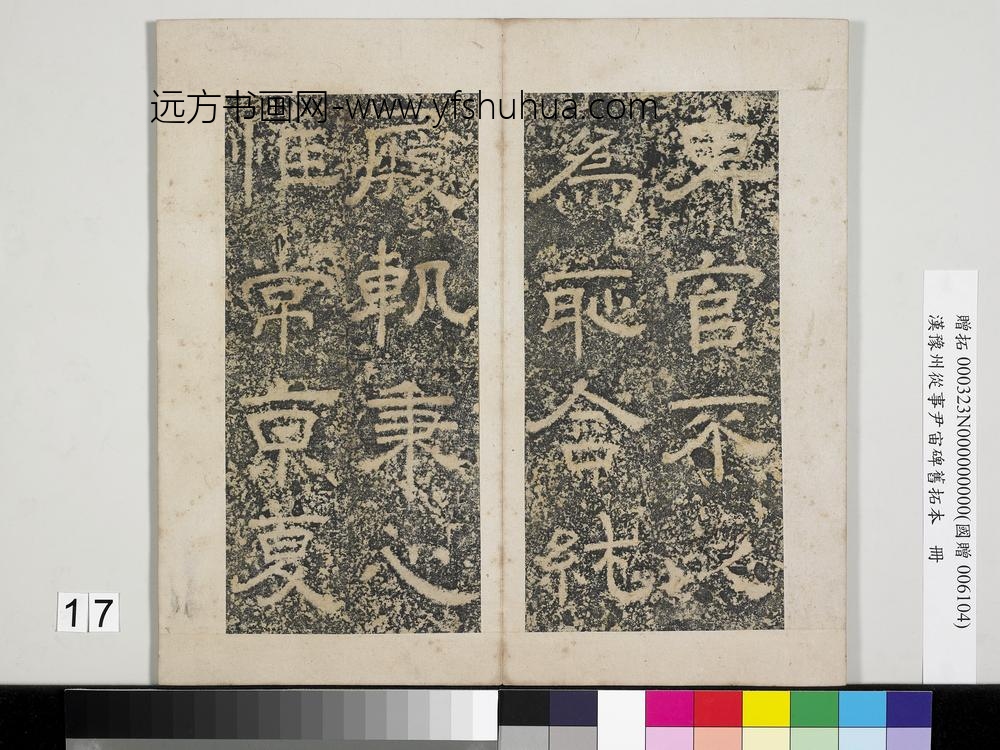 远方书画网-www.yfshuhua.com
卑官不以
為恥含純
履軌秉心
惟常京夏
贈拓 000323N000000000(國贈 006104)
漢豫州從事尹宙碑舊拓本 冊
17